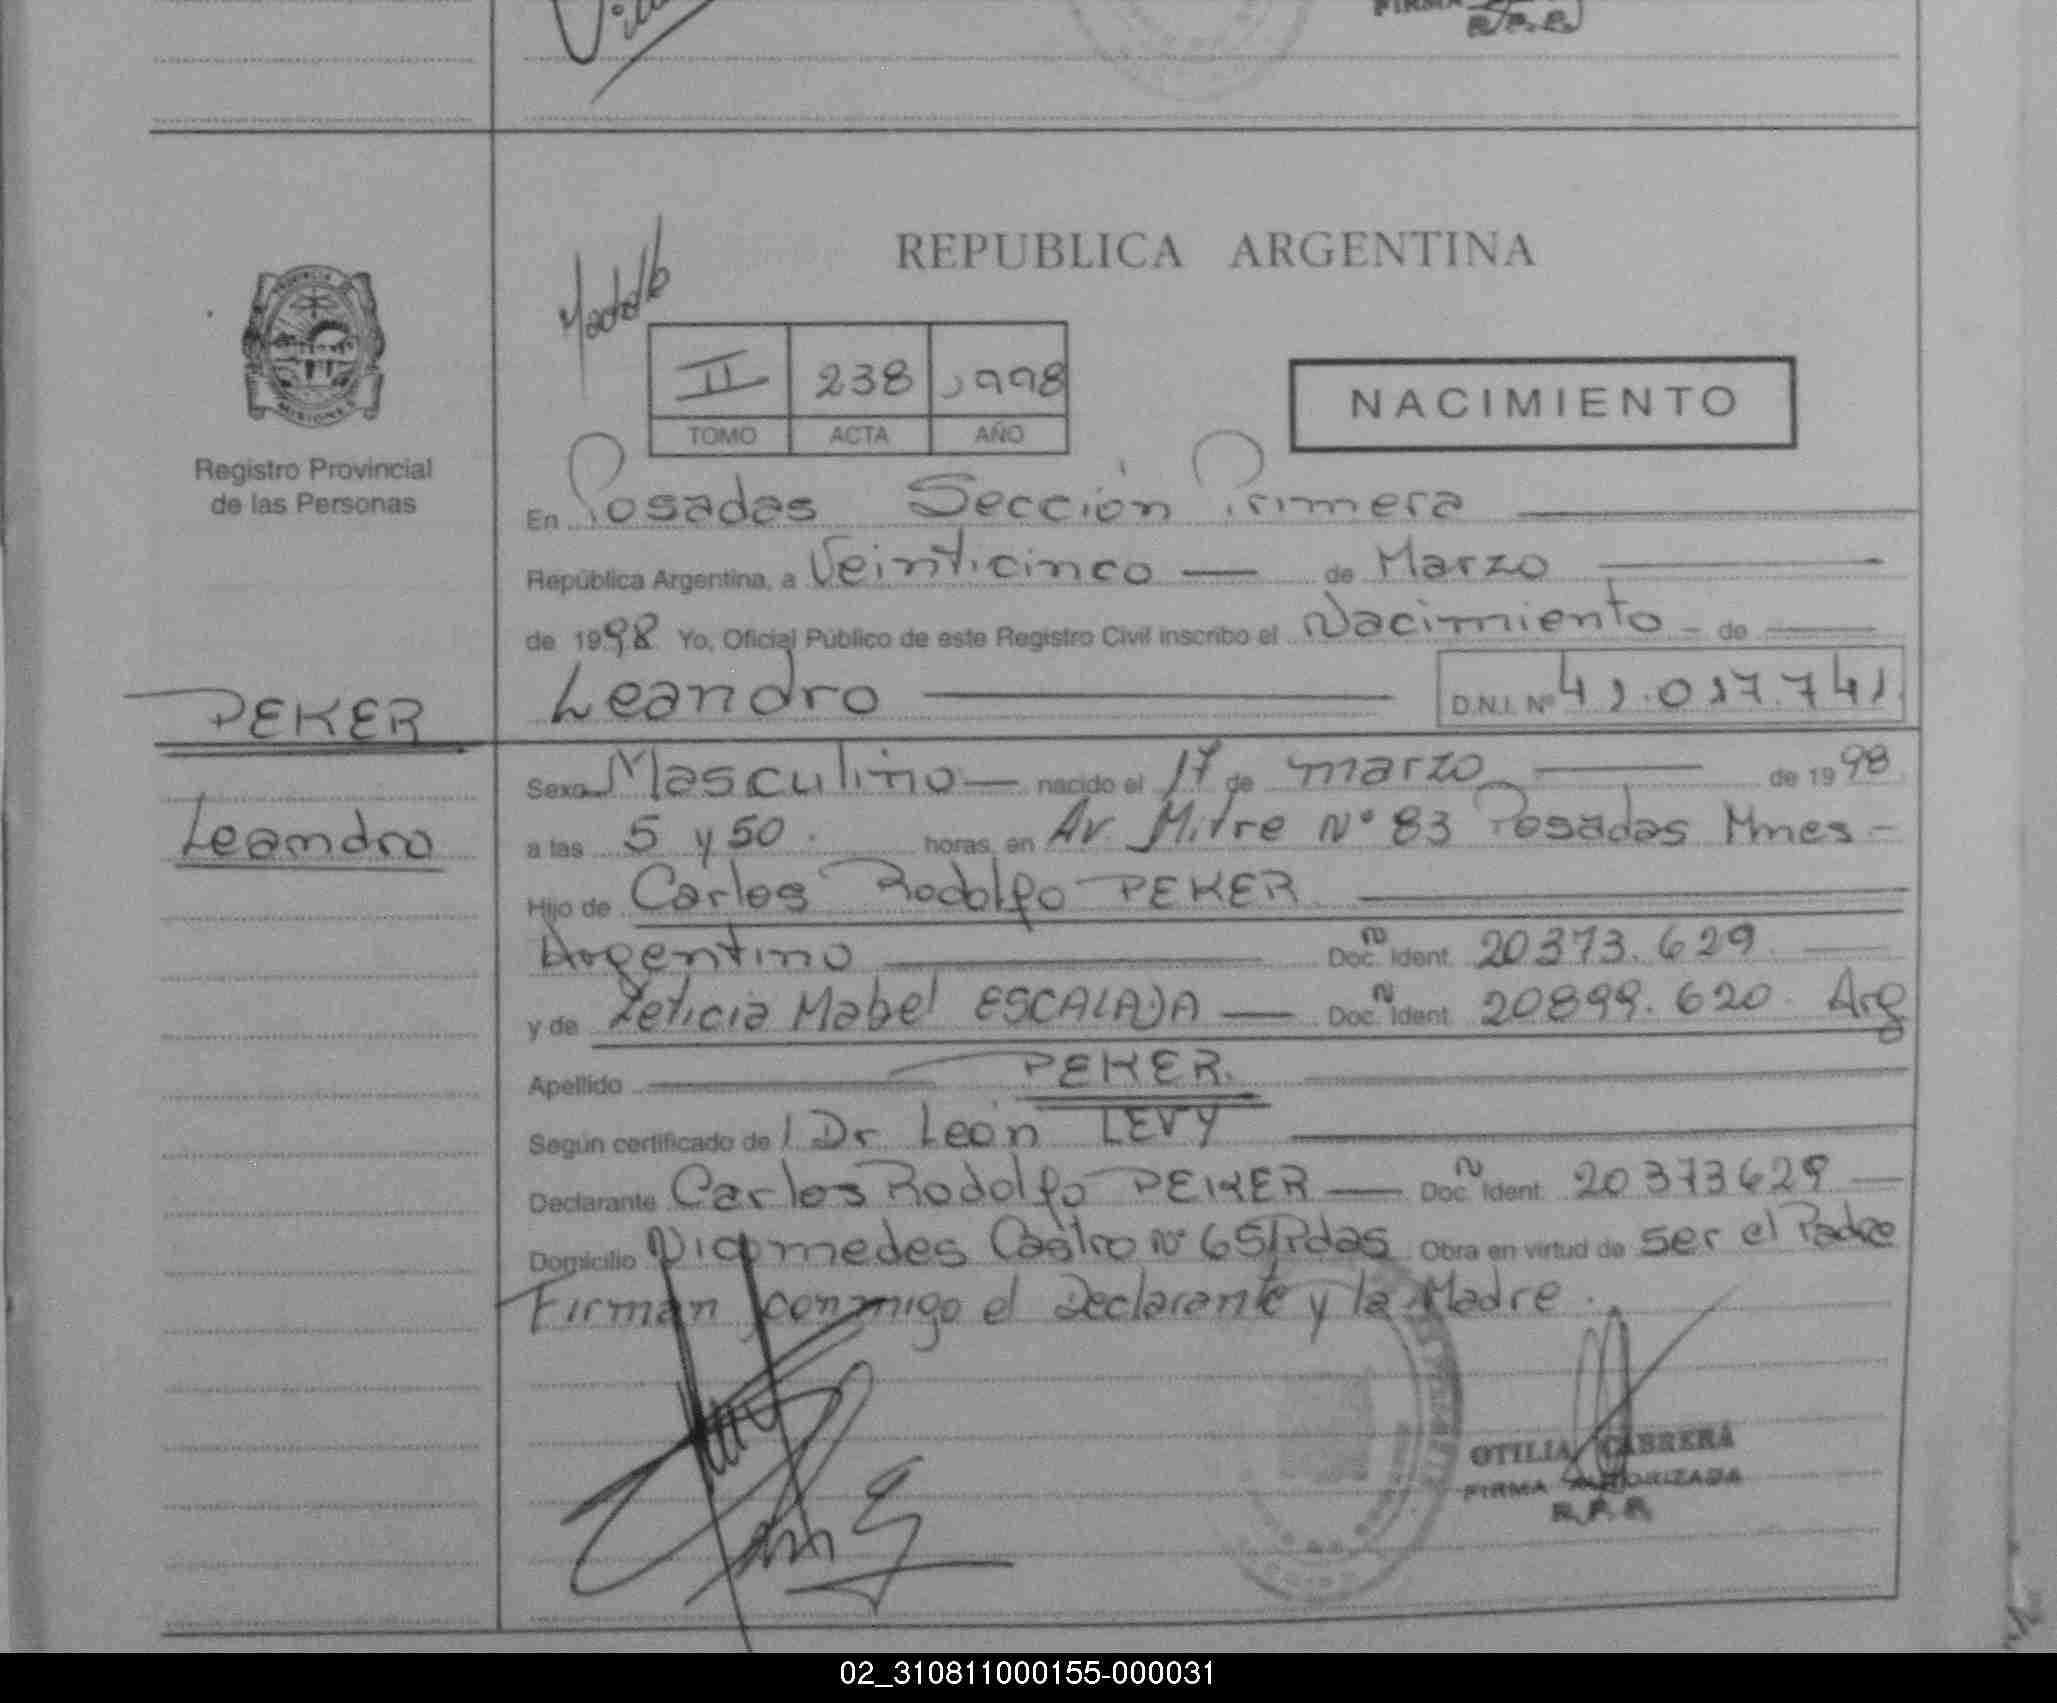 FIRMA
R.P.R.
REPUBLICA ARGENTINA
II 238 1998
TOMO ACTA AÑO
NACIMIENTO
MISIONES
Registro Provincial
de las Personas
En Posadas Sección Primera
República Argentina, a Veinticinco — de Marzo
de 1998 Yo, Oficial Público de este Registro Civil inscribo el Nacimiento - de
PEKER
Leandro
D.N.I. Nº 41.017.741
Leandro
Sexo Masculino — nacido el 17 de marzo de 1998
a las 5 y 50. horas, en Av. Mitre Nº 83 Posadas Mnes -
Hijo de Carlos Rodolfo PEKER
Argentino — Doc. Ident. 20373.629.
y de Leticia Mabel ESCALADA — Doc. Ident. 20899.620. Arg
Apellido PEKER.
Según certificado del Dr León LEVY
Declarante Carlos Rodolfo PEKER — Doc. Ident. 20373629 —
Domicilio Nicomedes Castro Nº 65 Pdas Obra en virtud de ser el Padre
Firman conmigo el Declarante y la Madre.
OTILIA CABRERA
FIRMA AUTORIZADA
R.P.R.
02_310811000155-000031